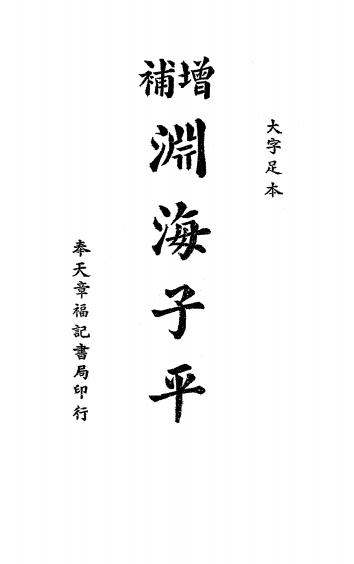 大字足本
增補
淵海子平
奉天章福記書局印行